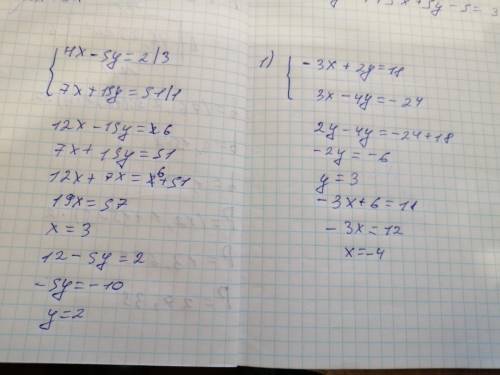 4x-5y=2/3
7x+15y=51/1
12x-15y=6
7x+15y=51
12x+7x=6+51
19x=57
x=3
12-5y=2
-5y=-10
y=2
1)
-3x+2y=18
3x-4y=-24
2y-4y=-24+18
-2y=-6
y=3
-3x+6=18
-3x=12
x=-4